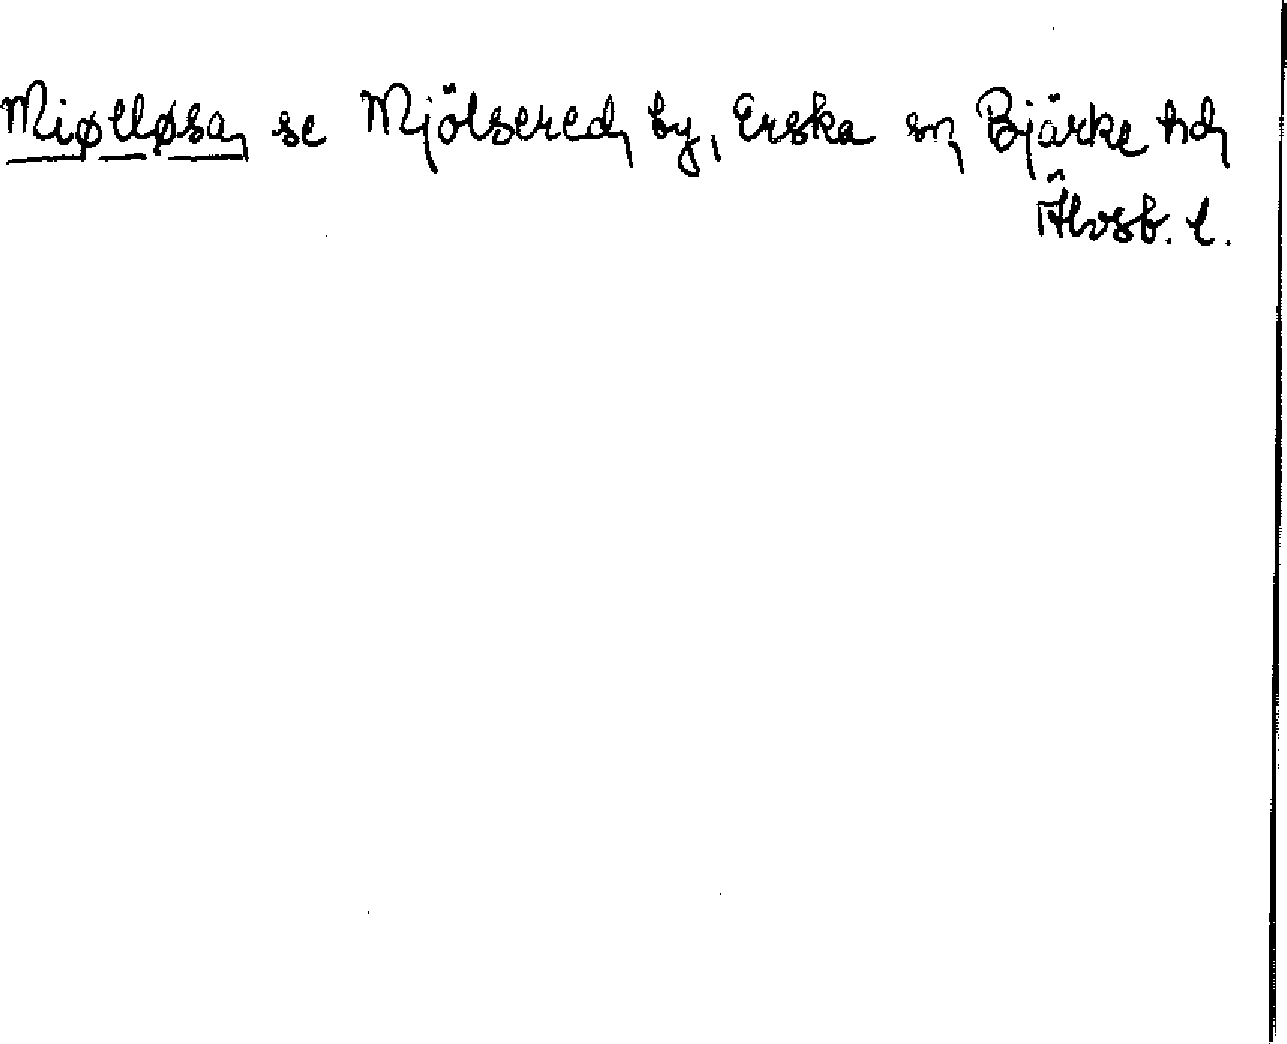 Miølløsa se Mjölsered by, Erska sn Bjärke hd
Älvsb. l.